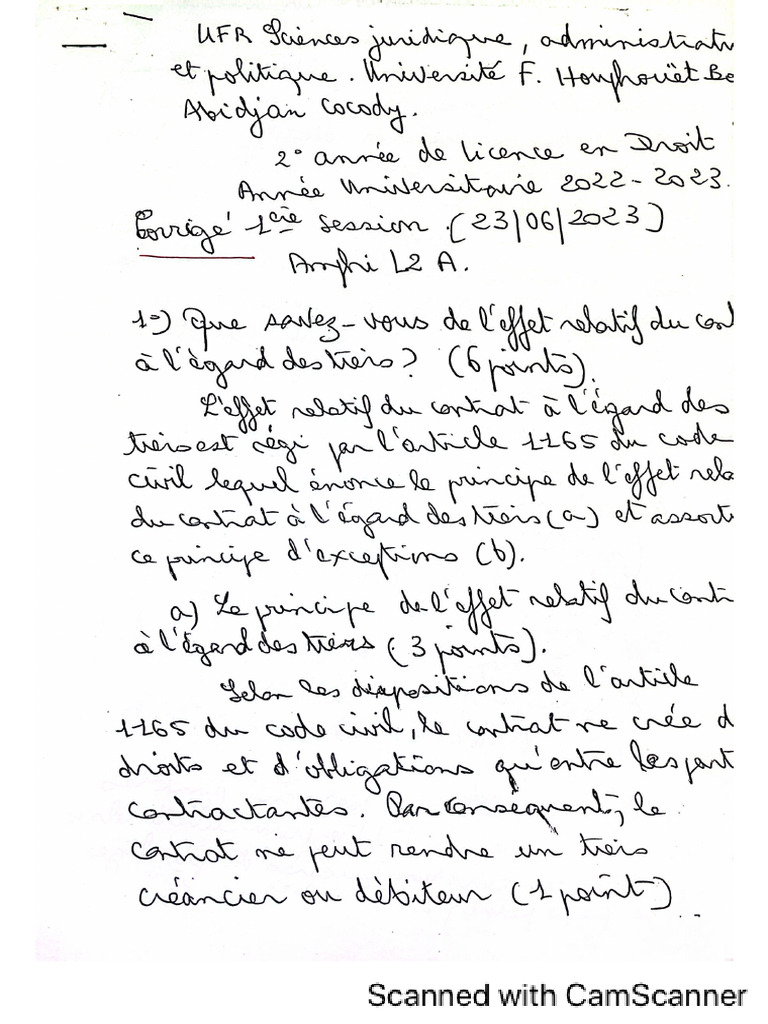 UFR Sciences juridique, administrativ
et politique. Université F. Houphouët Bo
Abidjan Cocody.
2° année de licence en Droit
Année Universitaire 2022-2023.
Corrigé 1ère Session. (23/06/2023)
Amphi L2 A.
1°) Que savez-vous de l'effet relatif du cont
à l'égard des tiers? (6 points).
L'effet relatif du contrat à l'égard des
tiers est régi par l'article 1165 du code
civil lequel énonce le principe de l'effet rela
du contrat à l'égard des tiers (a) et assorti
ce principe d'exceptions (b).
a) Le principe de l'effet relatif du contr
à l'égard des tiers (3 points).
Selon les dispositions de l'article
1165 du code civil, le contrat ne crée d
droits et d'obligations qu'entre les part
contractantes. Par conséquent, le
contrat ne peut rendre un tiers
créancier ou débiteur (1 point)...
Scanned with CamScanner